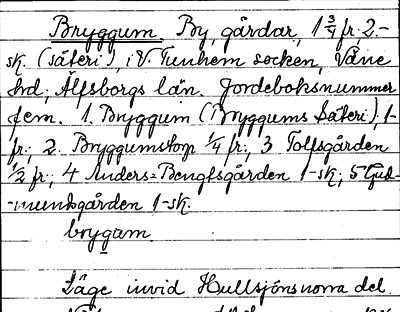 Bryggum. By, gårdar, 1 3/4 fr; 2-
sk. (säteri), i V. Tunhem socken, Väne
hd; Älfsborgs län. Jordeboksnummer
fem. 1. Bryggum (Bryggums Säteri), 1-
fr; 2. Bryggumstorp 1/4 fr; 3 Tolfsgården
1/2 fr; 4 Anders-Bengtsgården 1-sk; 5 Gud-
-mundsgården 1-sk.
brygam
Läge invid Hullsjöns norra del.